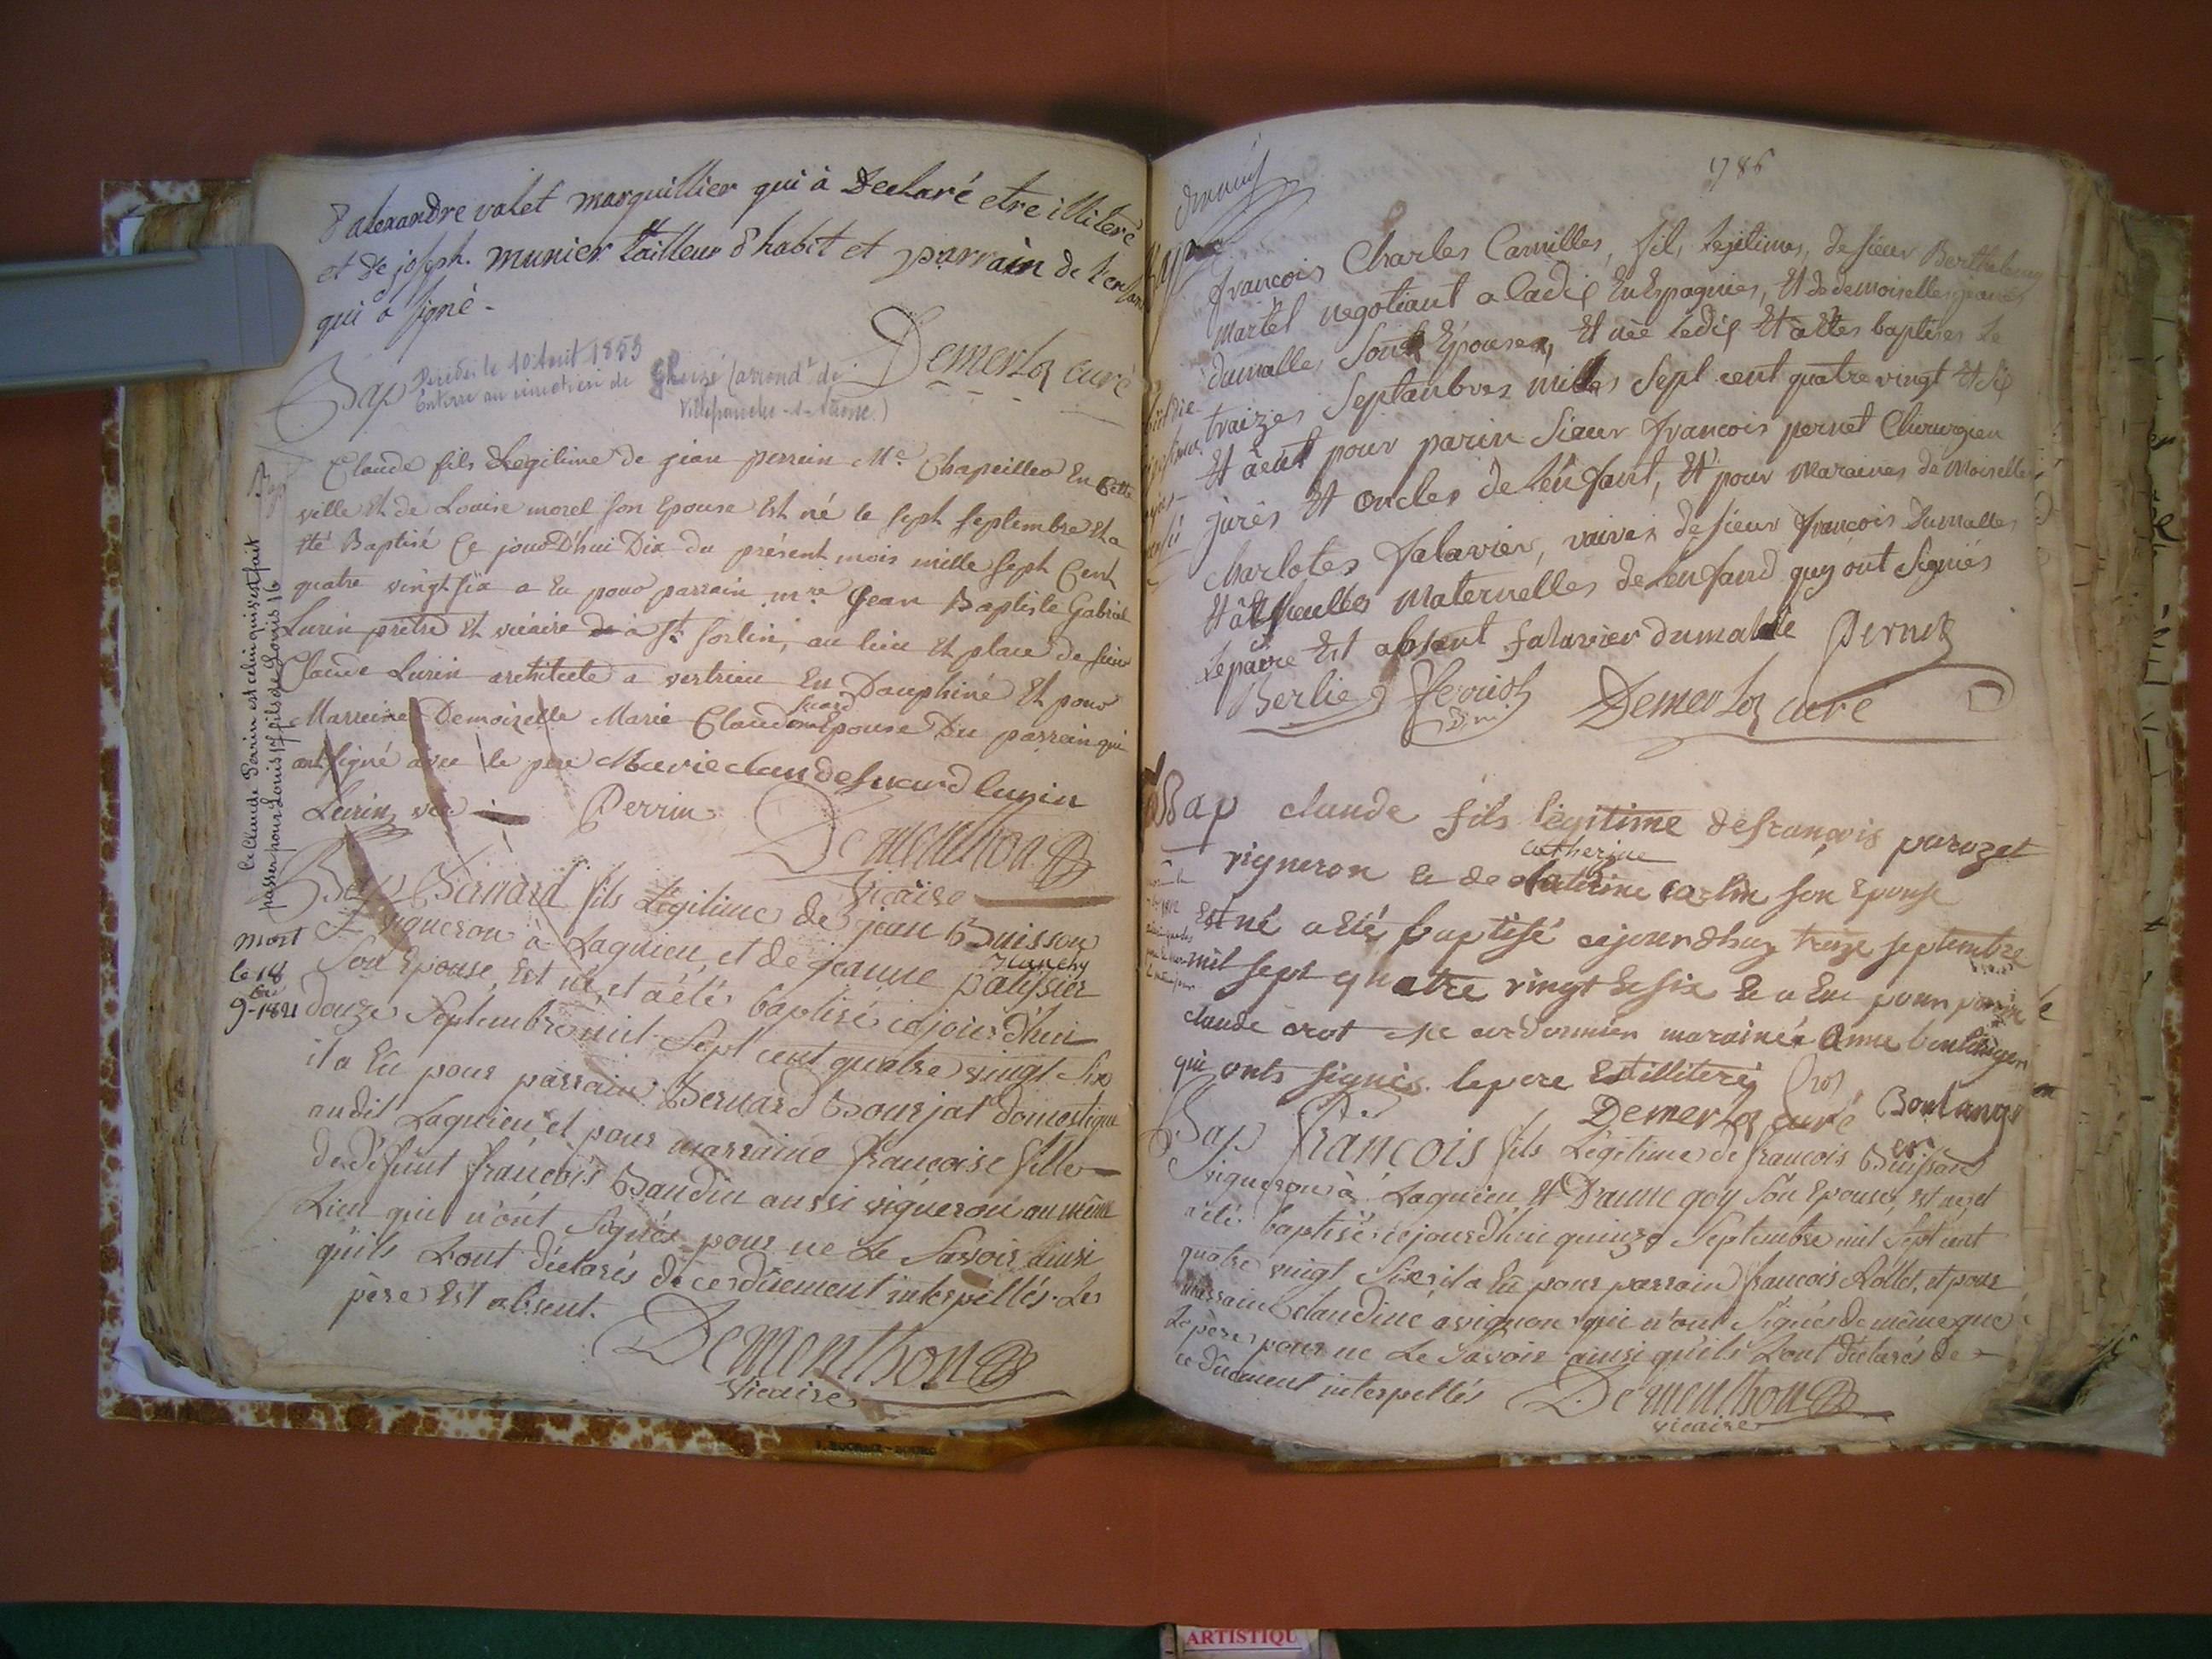 d'alexandre valet marguillier qui à Declaré etre illiteré
et de joseph munier tailleur d'habit et parrain de l'enfant
qui a signé.
Demerloz curé
Bap Décédé le 10 Aout 1853
Enterré au cimetière de Gleizé (arrondt de
Villefranche-s-Saône.)
Claude fils Legitime de jean perrein Me. Chapeillier En Cette
ville Et de Louise morel son Epouse Est né le sept septembre Et a
été Baptisé Ce jourd'hui Dix du présent mois mille sept Cent
quatre vingt six a Eu pour parrain mre jean Baptiste Gabriel
Lurin prêtre Et vicaire de à St Sorlin, au lieu Et place de sieur
Claude Lurin architecte a vertrieu En Dauphiné Et pour
Marreine Demoizelle Marie Claudine suard Epouse Du parrain qui
ont signé avec le pere Marie claude suard lurin
Lurin vic Perrin
Dementhon
Vicaire
le Claude Perrin est celui qui s'est fait
passer pour Louis 17 fils de Louis 16
Bap Bernard fils Légitime de jean Buisson
vigneron à Lagnieu, et de jeanne blanchy patissier
Son Epouse, Est né, et a été baptisé cejourd'hui
douze Septembre mil Sept cent quatre vingt Six
il a Eu pour parrain Bernard Bourjat domestique
audit Lagnieu et pour marraine françoise fille
de défunt françois Baudin aussi vigneron au même
Lieu qui n'ont Signés pour ne Le Savoir ainsi
qu'ils L'ont déclarés de ce dûement interpellés. Le
père Est absent.
Dementhon
Vicaire
mort
le 18
9bre 1821
1786
francois Charles Camilles, fils Legitimes, de sieur Berthelemy
martel negotiant a Cadix En Espagnies, Et de demoiselles jeanes
dumalles Sont Epouses, Et née Ledix Et a Etes baptises Le
traizes Septanbres milles Sept cent quatre vingt Et Six
Et a eut pour parin Sieur francois pernet Chirurgien
jurés Et oncles de L'enfant, Et pour Maraines de Moiselles
Charlotes falavier, vaives de sieur francois Dumalles
Et âYeulles Maternelles de Lenfand quy ont Signiés
Le paire Est absent falavier dumalle Pernet
Berlie ferriot Demerloz curé
Bap claude fils legitime de françois parozet
vigneron et de catherine carlin son Epouse
Est né a été baptisé cejourdhuy treize septembre
mil sept quatre vingt et six Et a Eue pour parin
claude crot Me cordonnier marainée anne boulangen
qui onts signés le pere Est illiteré Crot
Demerloz curé Boulanger
Bap françois fils Légitime de francois Buisson
vigneron à Lagnieu, Et D'anne goy Son Epouse, est né, et
a été baptisé cejourd'hui quinze Septembre mil Sept cent
quatre vingt Six; il a Eu pour parrain francois Rollet, et pour
marraine claudine avignon qui n'ont Signés de même que
Le père, pour ne Le Savoir ainsi qu'ils L'ont déclarés de
ce dûement interpellés Dementhon
Vicaire
ARTISTIQU